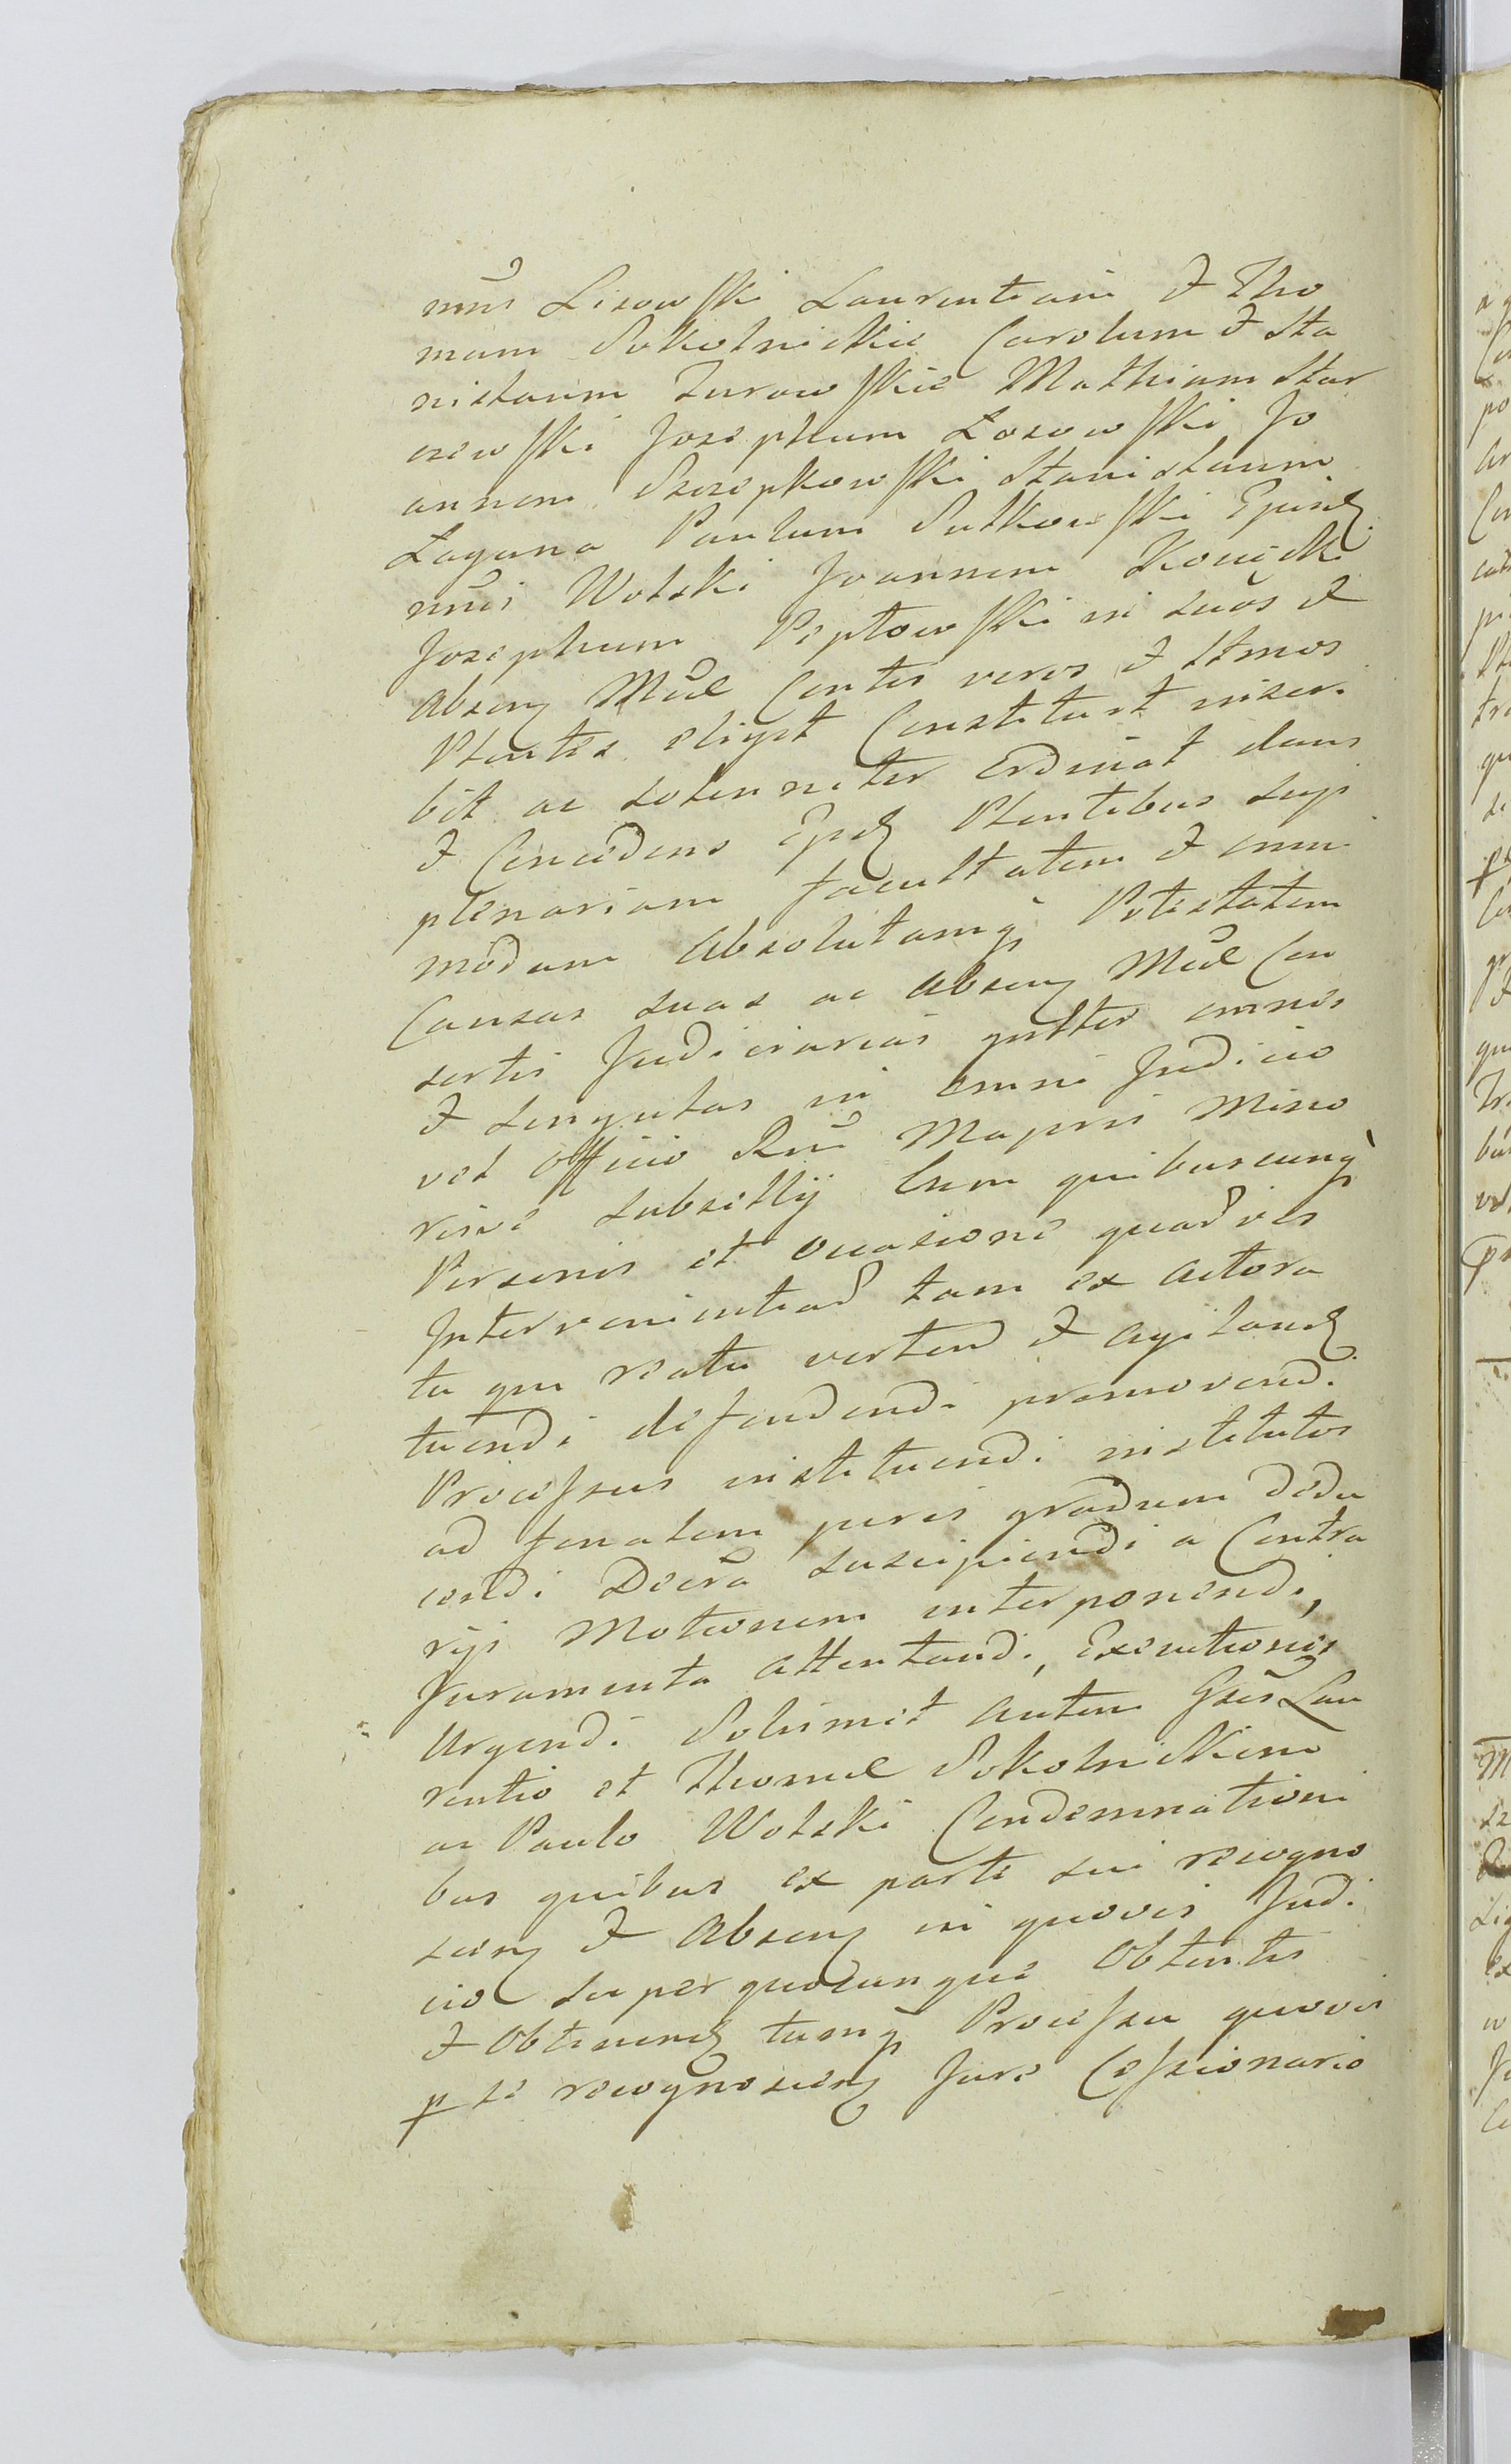 mũs Lisowski Laurentium & Tho
mam Sokolnickie Carolum & Sta
nislaum Zurowskie Mathiam Star
czewski Josephum Łosowski Jo
annem Szczepkowski Stanislaum
Laguna Paulum Sutkowski
Wolski Joannem
Josephum Peptowski in suos &
Absen Contis veros & ltmos
Plentes eligit Constituit inscri
bit ac solenniter Ordinat dans
& Concedens Plentibus sup
plenariam facultatem & omni
modam Absolutamq Potestatem
Causas suas ac Absen Con
sortis Judiciarias gnlter omnes
& singulas in omni Judicio
vel Officio Regni Majoris Mino
risve subsellij Cum quibuscunq
Personis et occasione quarũvis
Intervenientiarũ tam ex Actora
tu qm reatu verten & agitand
tuendi defendendi promovendi
Processus instituendi institutos
ad finalem juris gradum dedu
cendi Decra suscipiendi a Contra
rijs Motionem interponendi,
Juramenta Attentandi, Executiones
Urgendi Solimet autem Gsis Lau
rentio et Thomae Sokolnickim
ac Paulo Wolski Condemnationi
bus quibus ex parte sui recogno
scen & Absen in quovis Judi
cio super quocunque Obtentis
& Obtinend tumq Processu quovis
p se recognoscen Jure Cessionario